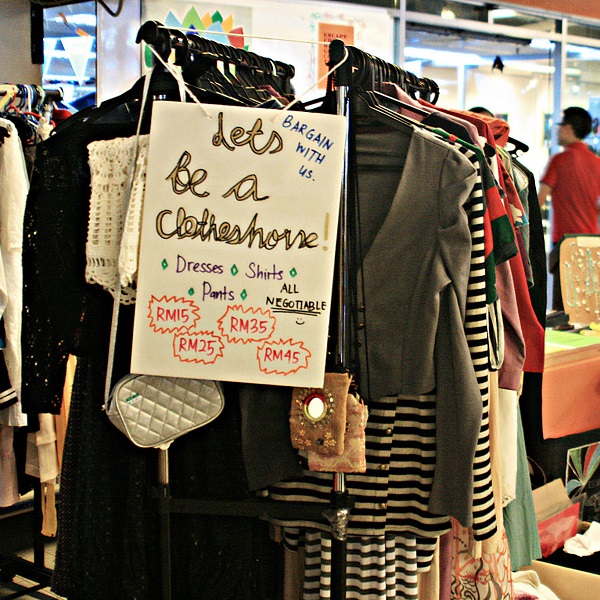 Lets
be a
Clotheshorse!
BARGAIN
WITH
us.
Dresses Shirts
Pants
ALL
NEGOTIABLE
RM15
RM35
RM25
RM45